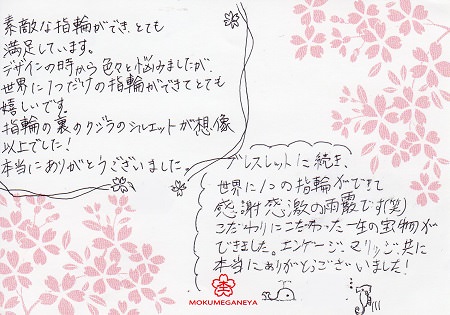 素敵な指輪ができ、とても
満足しています。
デザインの時から色々と悩みましたが、
世界に1つだけの指輪ができてとても
嬉しいです。
指輪の裏のクジラのシルエットが想像
以上でした!
本当にありがとうございました。
ブレスレットに続き、
世界に1つの指輪ができて
感謝感激の雨霰です(笑)
こだわりにこだわった一生の宝物が
できました。エンゲージ、マリッジ、共に
本当にありがとうございました!
MOKUMEGANEYA